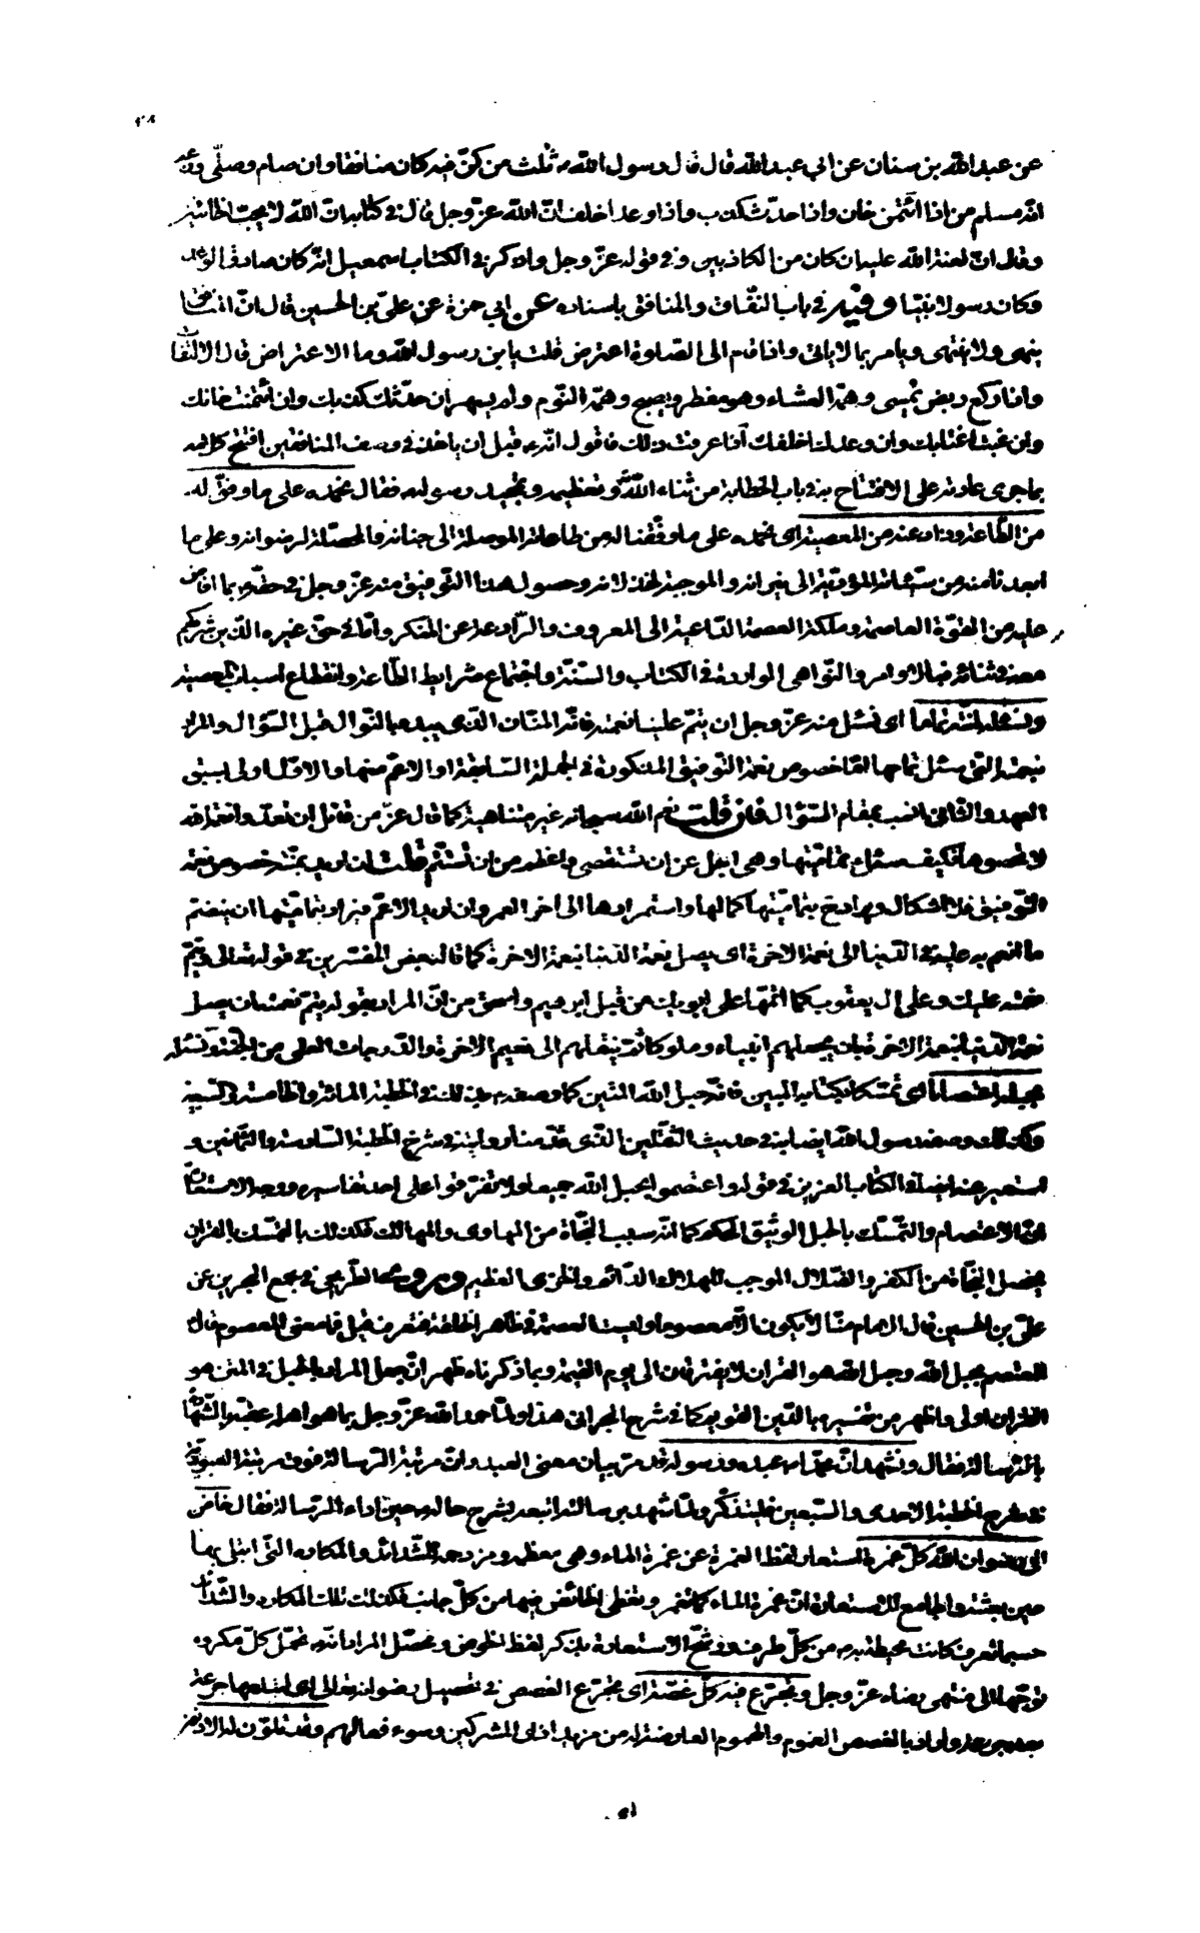 عن عبدالله بن سنان عن ابي عبدالله قال قال رسول الله ثلث من كنّ فيه كان منافقا وان صام وصلّى وزعم
انّه مسلم من اذا ائتمن خان واذا حدّث كذب واذا وعد اخلف انّ الله عزّ وجل قال في كتابه انّ الله لا يحبّ الخائنين
وقال انّ لعنة الله عليه ان كان من الكاذبين وفي قوله عزّ وجل واذكر في الكتاب اسمعيل انّه كان صادق الوعد
وكان رسولا نبيّا وفيه في باب النفاق والمنافق باسناده عن ابي حمزة عن عليّ بن الحسين قال انّ المنافق
ينهى ولا ينتهى ويامر بما لا ياتى واذا قام الى الصلوة اعترض قلت يا بن رسول الله وما الاعتراض قال الالتفات
واذا ركع ربض يمسي وهمّه العشاء وهو مفطر ويصبح وهمّه النوم ولم يسهر ان حدّثك كذبك وان ائتمنته خانك
وان غبت اغتابك وان وعدك اخلفك اذا عرفت ذلك فاقول انّه قبل ان ياخذ في وصف المنافقين افتتح كلامه
بما جرى عادته على الافتتاح به في باب الخطابة من ثناء الله وتعظيمه وتمجيد رسوله فقال نحمده على ما وفق له
من الطاعة وذاد عنه من المعصية اى نحمده على ما وفّقنا له من طاعاته الموصلة الى جنانه والمحصّلة لرضوانه وعلى ما
ابعدنا منه من سيّئاته المؤدّية الى نيرانه والموجبة لخذلانه وحصول هذا التوفيق منه عزّ وجل في حقّه بما افاض
عليه من القوّة العاصمة وملكة العصمة الدّاعية الى المعروف والرّادعة عن المنكر وامّا في حق غيره الذين شركهم
معه في ثنائه فبالاوامر والنّواهى الواردة في الكتاب والسّنّة واجتماع شرايط الطّاعة وانقطاع اسباب المعصية
ونسئله لمنّته تماما اى نسئل منه عزّ وجل ان يتمّ علينا نعمته فانّه المنّان الذى يبدء بالنّوال قبل السّؤال والمراد
بنعمته التي سئل تمامها امّا خصوص نعمة التوفيق المذكورة في الجملة السّابقة او الاعمّ منها والاوّل اولى لسبق
العهد والثانى انسب بمقام السّؤال فان قلت نعم الله سبحانه غير متناهية كما قال عزّ من قائل ان تعدّوا نعمة الله
لا تحصوها فكيف سئل تماميّتها وهي اجلّ عن ان تستقصى واعظم من ان تستتمّ قلت ان اريد بمنّته خصوص نعمة
التّوفيق فلا اشكال ويراد ح بتماميّتها كمالها واستمرارها الى اخر العمر وان اريد الاعمّ فيراد بتماميّتها ان ينضمّ
ما انعم به عليه في الدّنيا الى نعمة الاخرة اى يصل نعمة الدّنيا بنعمة الاخرة كما قال بعض المفسّرين في قوله تعالى ويتمّ
نعمته عليك وعلى آل يعقوب كما اتمّها على ابويك من قبل ابرهيم واسحق من انّ المراد بقوله يتمّ نعمته ان يصل
نعمة الدّنيا بنعمة الاخرة بان يجعلهم انبياء وملوكا ثمّ ينقلهم الى نعيم الاخرة والدّرجات العلى من الجنّة ونسئله
بحبله اعتصاما اى تمسّكا بكتابه المبين فانّه حبل الله المتين كما وصفه بذلك في الخطبة المائة والخامسة والتسعين
وكذلك وصفه رسول الله ايضا به في حديث الثّقلين الذى قدّمنا روايته في شرح الخطبة السّادسة والثّمانين و
استعير عنه ايضا في الكتاب العزيز في قوله واعتصموا بحبل الله جميعا ولا تفرّقوا على احد تفاسيره ووجه الاستعارة
انّ الاعتصام والتّمسّك بالحبل الوثيق المحكم كما انّه سبب النّجاة من المهاوى والمهالك فكذلك بالتمسّك بالقران
يحصل النّجاة من الكفر والضّلال الموجب للهلاك الدّائم والخزى العظيم وروى الطّريحي في مجمع البحرين عن
عليّ بن الحسين قال الامام منّا لا يكون الّا معصوما وليست العصمة في ظاهر الخلقة فتعرف قيل فما معنى المعصوم قال
المعتصم بحبل الله وحبل الله هو القران لا يفترقان الى يوم القيمة وبما ذكرناه ظهر انّ جعل المراد بالحبل في المتن هو
القران اولى واظهر من تفسيره بالدّين القويم كما في شرح البحراني هذا ولمّا حمد الله عزّ وجل بما هو اهله عقّبه بالشّهادة
بالرّسالة فقال ونشهد انّ محمّدا عبده ورسوله قد مرّ بيان معنى العبد وانّ مرتبة الرّسالة فوق مرتبة العبوديّة
في شرح الخطبة الاحدى والسّبعين فليتذكّر ولمّا شهد برسالته اتبعه بشرح حاله حين اداء الرّسالة فقال خاض
الى رضوان الله كلّ غمرة استعار لفظ الغمرة عن غمرة الماء وهي معظمه ومزدحمه للشّدائد والمكاره الّتى ابتلى بها
حين بعثته والجامع للاستعارة انّ غمرة الماء كما تغمر وتغطى الخائض فيها من كلّ جانب فكذلك تلك المكاره والشّدائد
حسبما تعرف كانت محيطة به من كلّ طرف ورشّح الاستعارة بذكر لفظ الخوض ومحصّل المراد انّه تحمّل كلّ مكروه
توجّها الى منتهى رضاه عزّ وجل وتجرّع فيه كلّ غصّة اى تجرّع الغصص في تحصيل رضوانه تعالى اى ابتلعها جرعة
بعد جرعة واراد بالغصص الغموم والهموم العارضة له من مزيد اذى المشركين وسوء فعالهم وقد تلوّن له الادنون